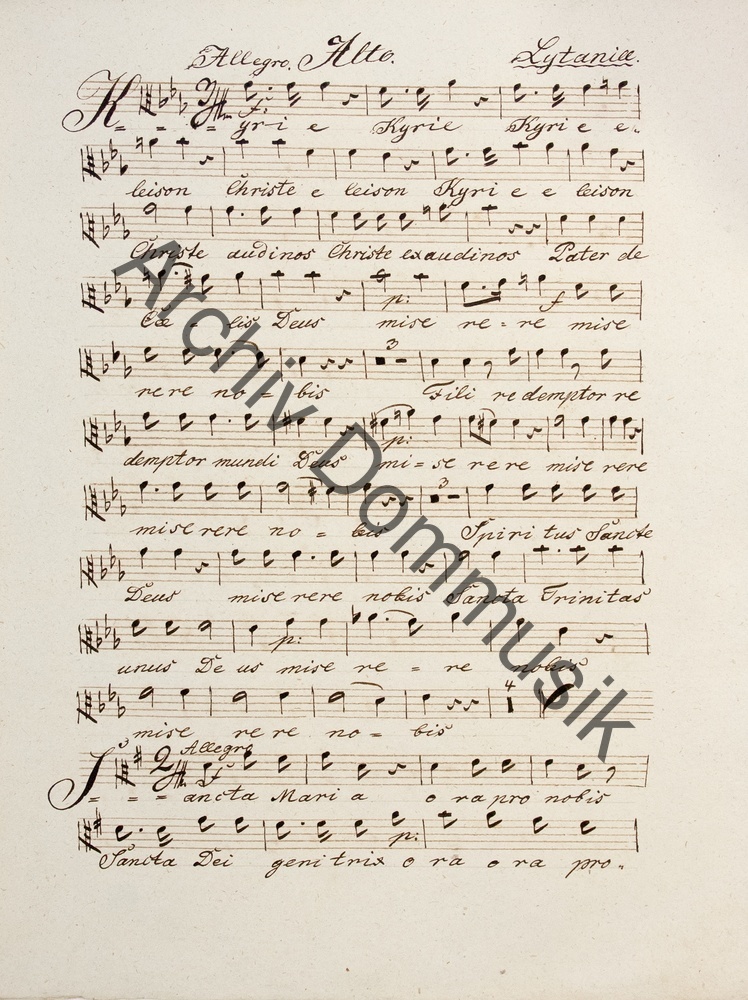 Allegro. Alto. Lytaniæ.
Kyrie Kyrie Kyrie e-
leison Christe eleison Kyrie eleison
Christe audinos Christe exaudinos Pater de
Cœ - lis Deus mise re - re mise
rere no - bis Fili redemptor re
demptor mundi Deus mi - se rere mise rere
mise rere no - bis Spiritus Sancte
Deus mise rere nobis Sancta Trinitas
unus Deus mise re - re nobis
mise rere no - bis
Allegro
Sancta Maria ora pro nobis
Sancta Dei genitrix ora ora pro-
Archiv Dommusik